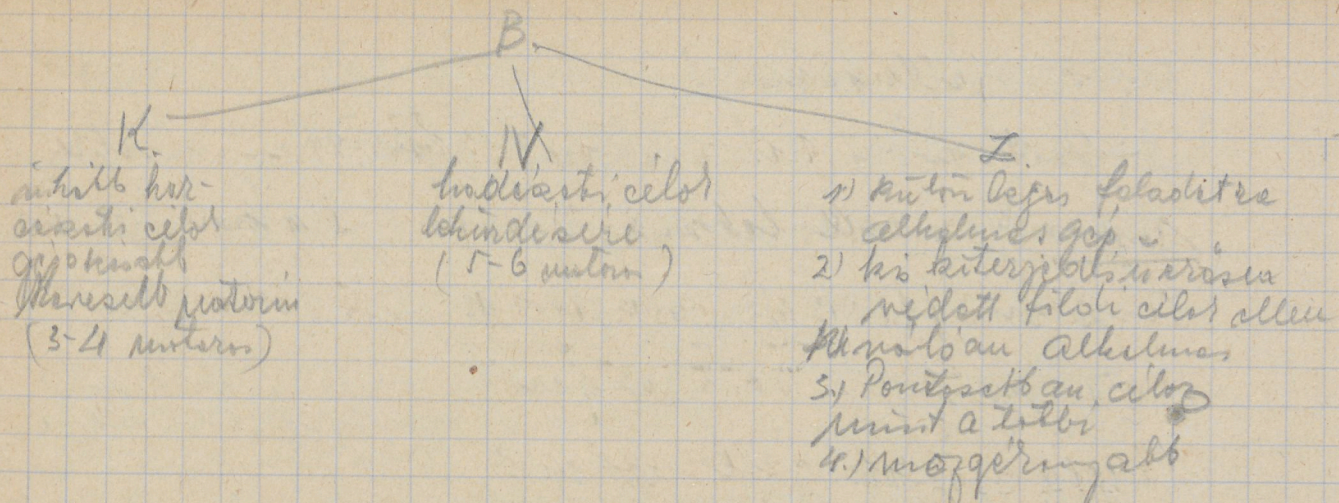 B.
K.
IV
Z.
inkább har-
cászati célok
gyorsabb
Kevesebb motorú
(3-4 motoros)
hadászati célok
leküzdésére
(5-6 motoros)
1) különleges feladatra
alkalmas gép
2) kis kiterjedésű erősen
védett földi célok ellen
Kiválóan alkalmas
3.) Pontosabban céloz
mint a többi
4.) mozgékonyabb